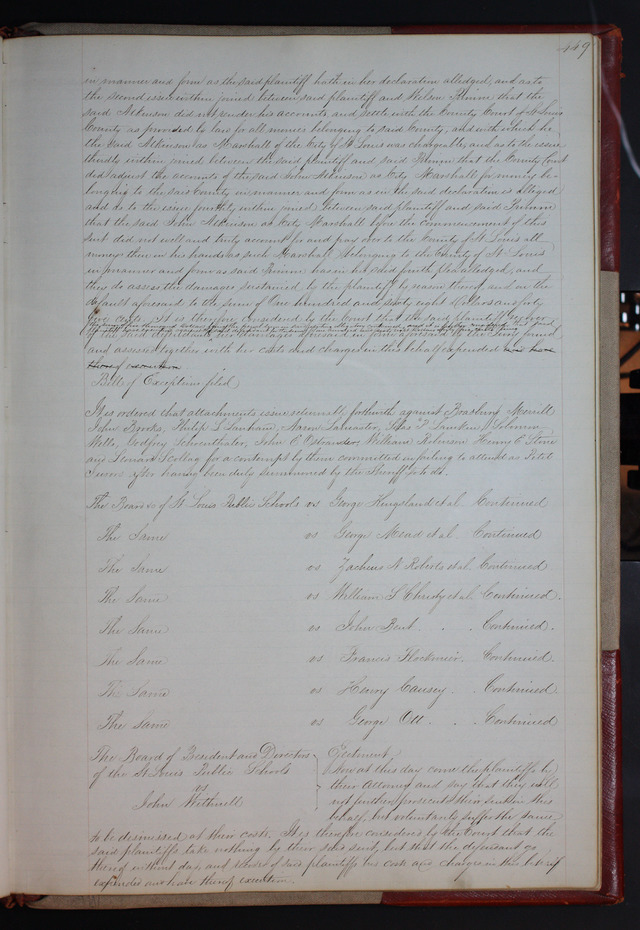 449
in manner and form as the said plaintiff hath in her declaration alledged, and as to
the second issue within joined between said plaintiff and Nelson Primm, that the
said Atkinson did not render his accounts, and settle with the County Court of St Louis
County as provided by law for all monies belonging to said County, and with which he
the said Atkinson as Marshall of the City of St Louis was chargeable, and as to the issue
thirdly within joined between the said plaintiff and said Primm that the County Court
did adjust the accounts of the said John Atkinson as City Marshall for money be-
longing to the said County in manner and form as in the said declaration is alleged
and as to the issue fourthly within joined between said plaintiff and said Primm
that the said John Atkinson as City Marshall before the commencement of this
suit did not well and truly account for and pay over to the County of St Louis all
moneys then in his hands as such Marshall belonging to the County of St Louis
in manner and form as said Primm has in his plea alledged, and
they do assess the damages sustained by the plaintiff by reason thereof and on the
default aforesaid to the sum of One hundred and sixty eight dollars and forty
five cents. It is therefore considered by the Court that the said plaintiff recover
of the said defendants her damages aforesaid in form
and assessed together with her costs and charges in this behalf expended and have
thereof execution
Bill of Exceptions filed
It is ordered that attachments issue returnable forthwith against Merrill
John Brooks, Philip S Lanham, Aaron Lancaster, Silas P Solomon
Watts, Godfrey Schoenthaler, John C Ostrander, William Robinson Henry C Stone
and for a contempt by them committed in failing to attend as Petit
Jurors after having been duly summoned by the Sheriff so to do.
The Board of St Louis Public Schools vs George Kingsland et al Continued
The Same vs George Mead et al Continued
The Same vs Zacheus N Roberts et al Continued
The Same vs William T Christy et al Continued.
The Same vs John Bent . . Continued.
The Same vs Francis . Continued.
The Same vs Henry Causey . Continued
The Same vs George Ott . . Continued
The Board of President and Directors
of the St Louis Public Schools
vs
John Withnell
Ejectment,
Now at this day come the plaintiffs by
their Attorney and say that they will
not further prosecute their suit in this
behalf, but voluntarily suffer the same
to be dismissed at their costs. It is therefore considered by the Court that the
said plaintiffs take nothing by their said suit, but that the defendant go
thereof without day and recover of said plaintiffs his costs and charges in this behalf
expended and have thereof execution.